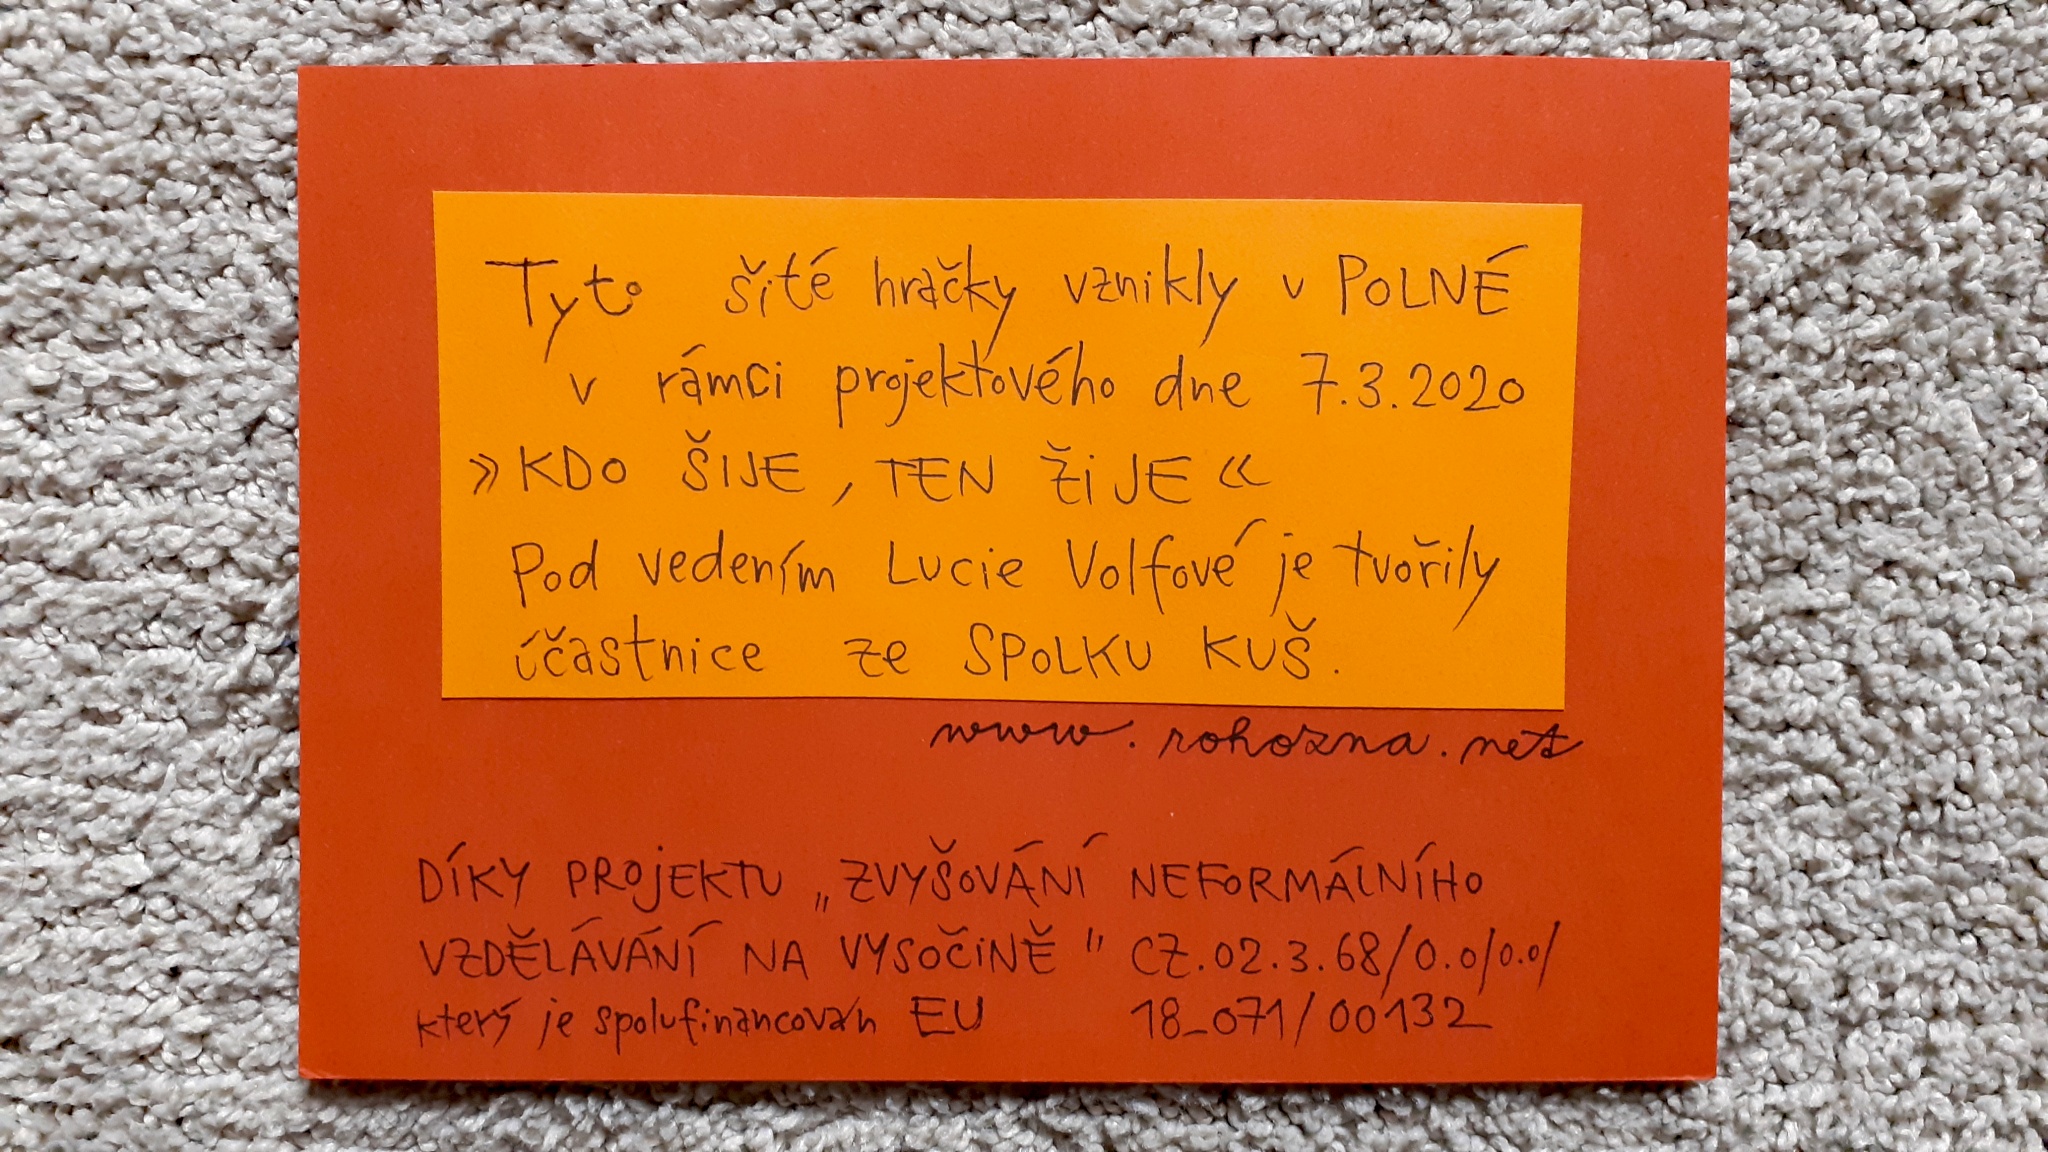 Tyto šité hračky vznikly v POLNÉ
v rámci projektového dne 7.3.2020
»KDO ŠIJE, TEN ŽIJE«
Pod vedením Lucie Volfové je tvořily
účastnice ze SPOLKU KUŠ.
www.rohozna.net
DÍKY PROJEKTU „ZVYŠOVÁNÍ NEFORMÁLNÍHO
VZDĚLÁVÁNÍ NA VYSOČINĚ" CZ.02.3.68/0.0/0.0/
který je spolufinancován EU 18_071/00132